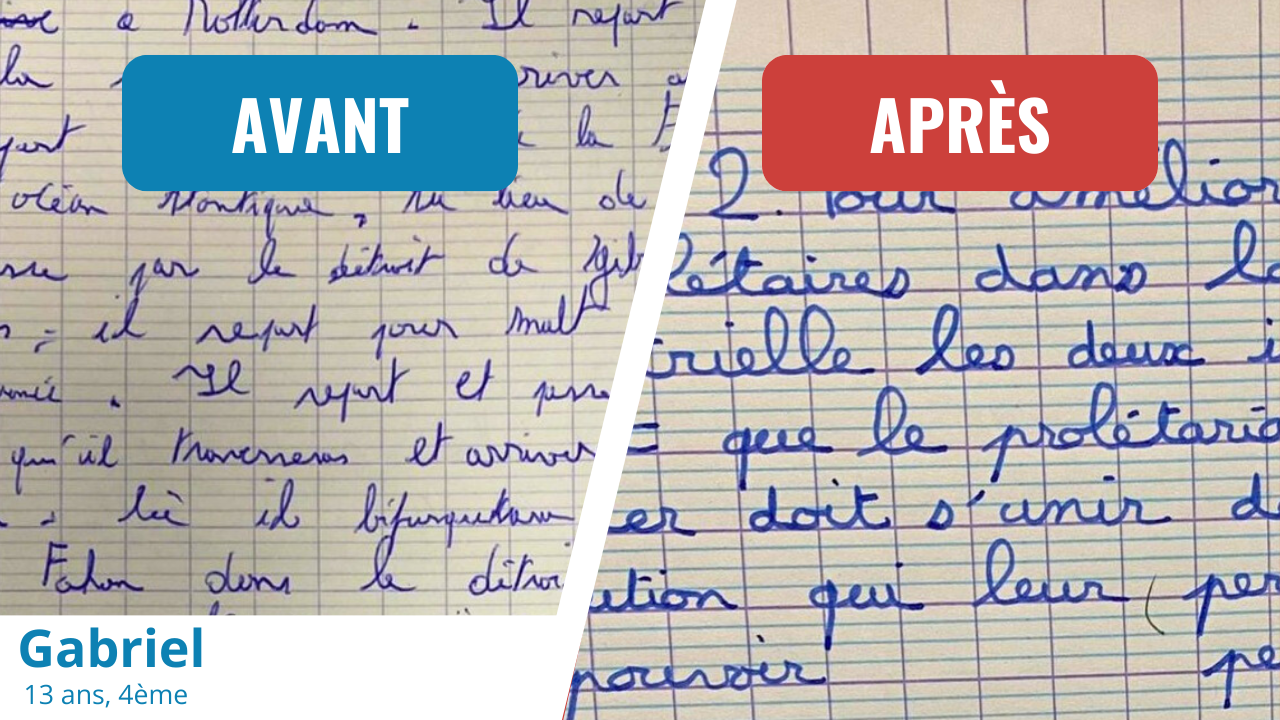 AVANT
à Rotterdam. Il repart
la
river a
part
la
océan Atlantique, au lieu de
par le détroit de Gib
il repart pour Malt
. Il repart et
qu'il traversera et arrivera
là il bifurquera
dans le détroi
Gabriel
13 ans, 4ème
APRÈS
2. Pour amélior
létaires dans la
trielle les deux i
= que le prolétaria
er doit s'unir d
ution qui leur (per
pouvoir pe